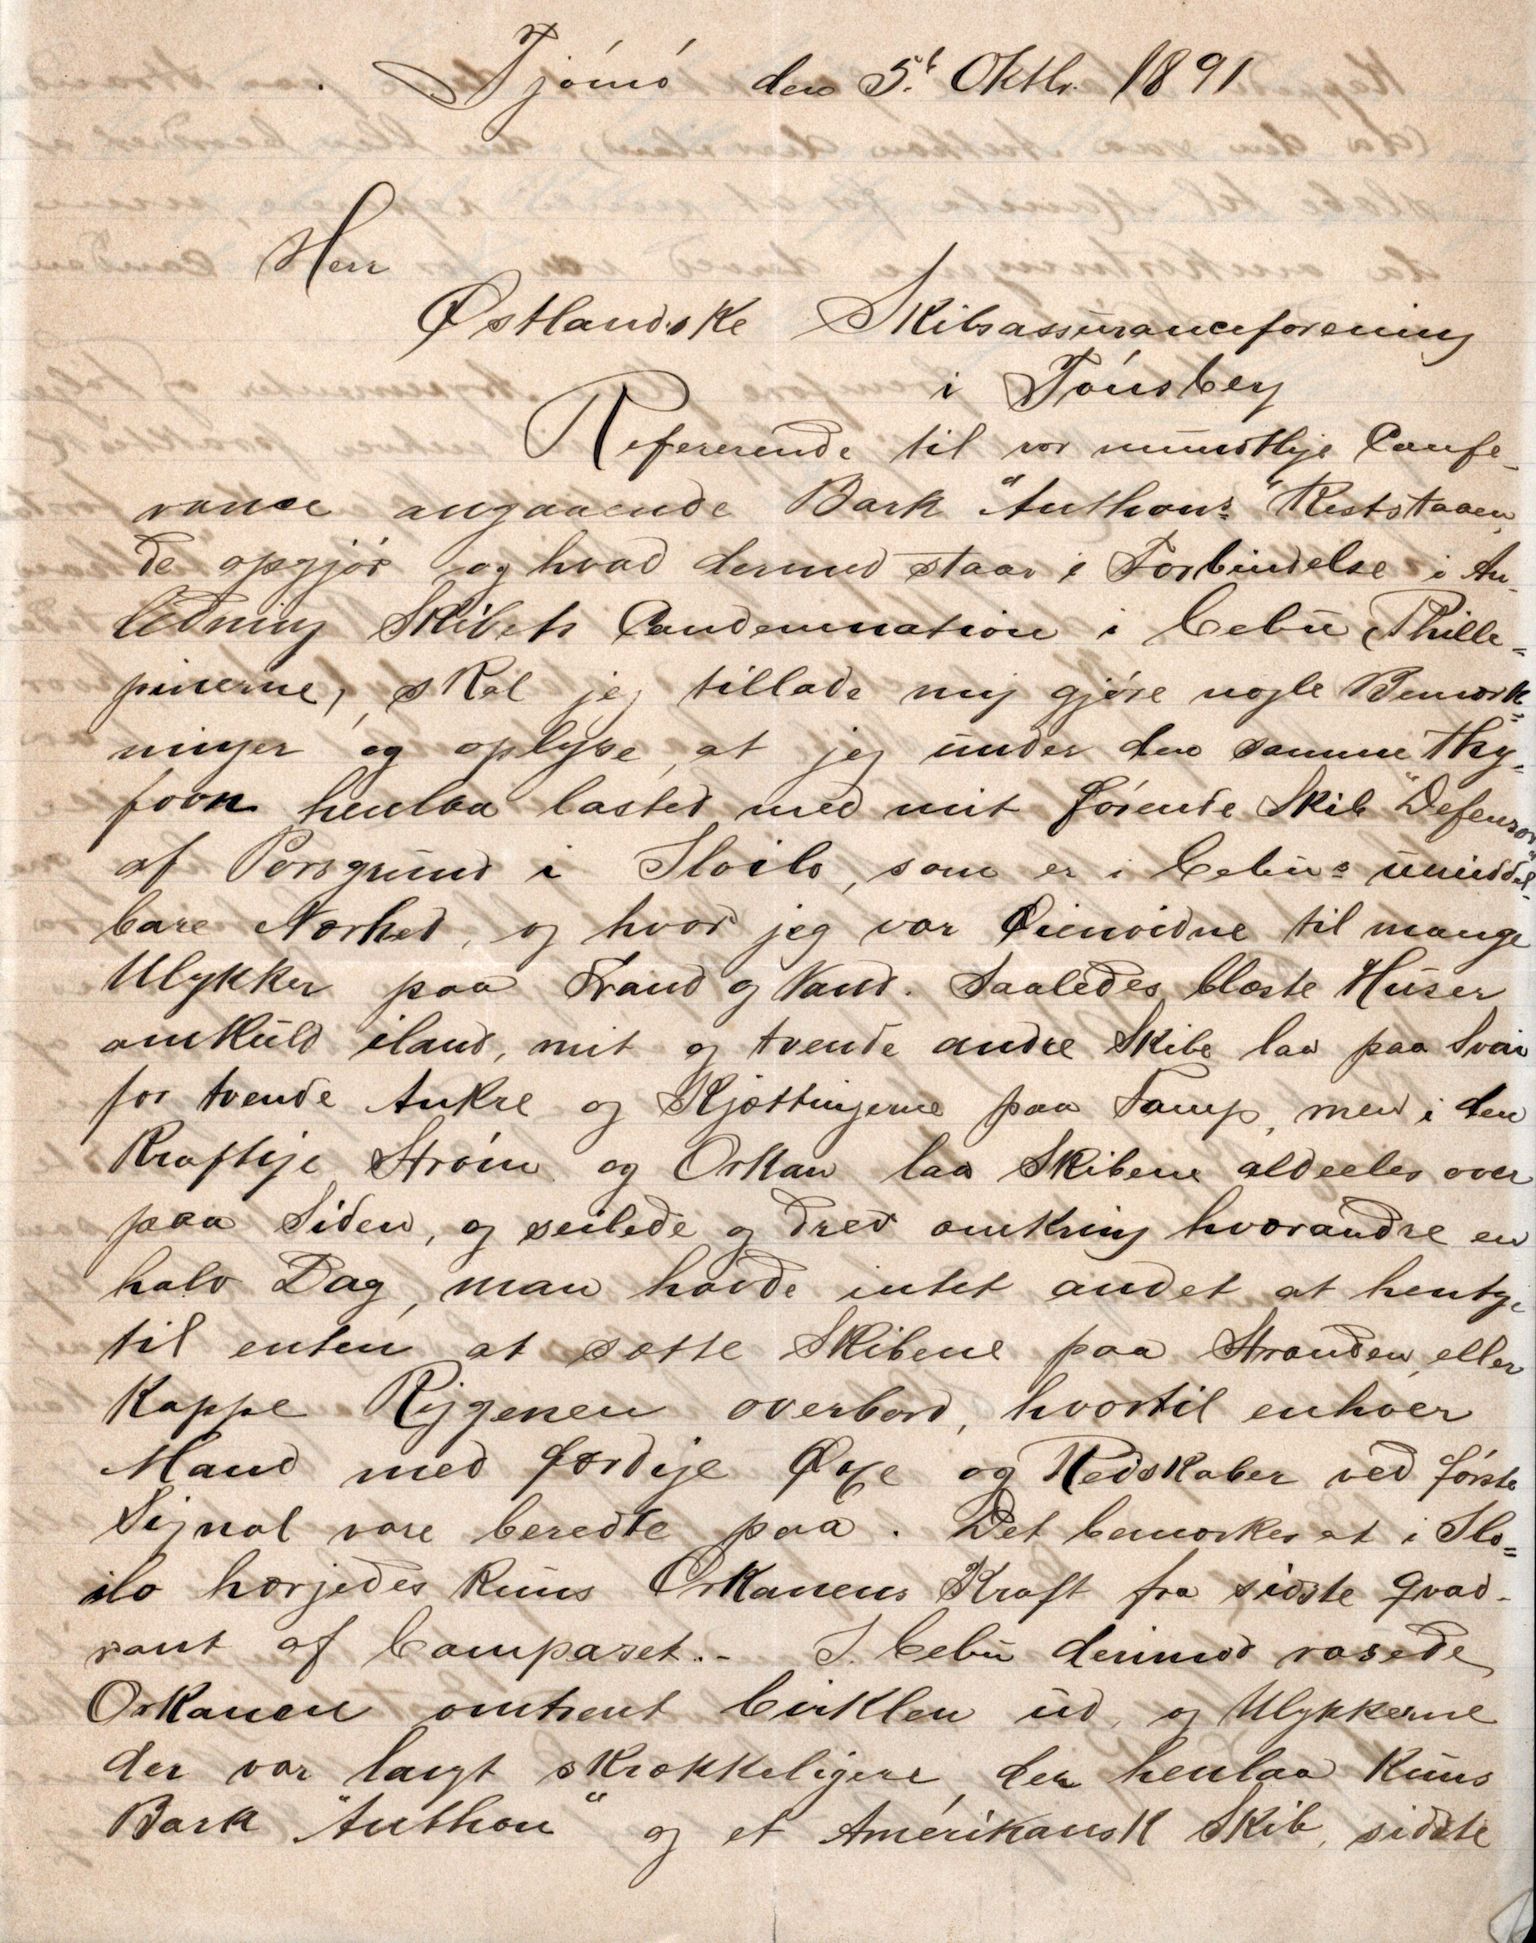 Tjómó den 5.t Oktbr. 1891
Herr
Østlandske Skibsassuranceforening
i Tónsberg
Refererende til vor mundtlige Confe-
rance angaaende Bark "Anthons" Reststaaen-
de opgjór og hvad dermed staar i Forbindelse i An-
ledning Skibets Condemnation i Cebu, Phille=
pinerne, skal jeg tillade mig gjóre nogle Bemærk=
ninger og oplyse, at jeg under den samme Thy=
foon henlaa lastet med mit fórende Skib "Defensor"
af Porsgrund i Iloilo, som er i Cebu=s umiddel-
bare Nærhed, og hvor jeg var Øienvidne til mange
Ulykker paa Strand og Vand. Saaledes blæste Huser
omkuld iland, mit og tvende andre Skibe laa paa Svai
for tvende Ankre og Kjættingerne paa Tamp, men i den
Kraftige Stróm og Orkan laa Skibene aldeeles over
paa Siden, og seilede og drev omkring hverandre en
halv Dag, man havde intet andet at henty
til enten at sætte Skibene paa Stranden, eller
Kappe Riggenen overbord, hvortil enhver
Mand med færdige Øxe og Redskaber ved fórste
Signal vare beredte paa. Det bemærkes at i Ilo=
ilo herjedes kuns Orkanens Kraft fra sidste Qvad-
rant af Compasset.- I Cebu derimod rasede
Orkanen omtrent Cirklen ud, og Ulykkerne
der var langt skrækkeligere, der henlaa Kuns
Bark "Anthon" og et Amerikansk Skib, sidste